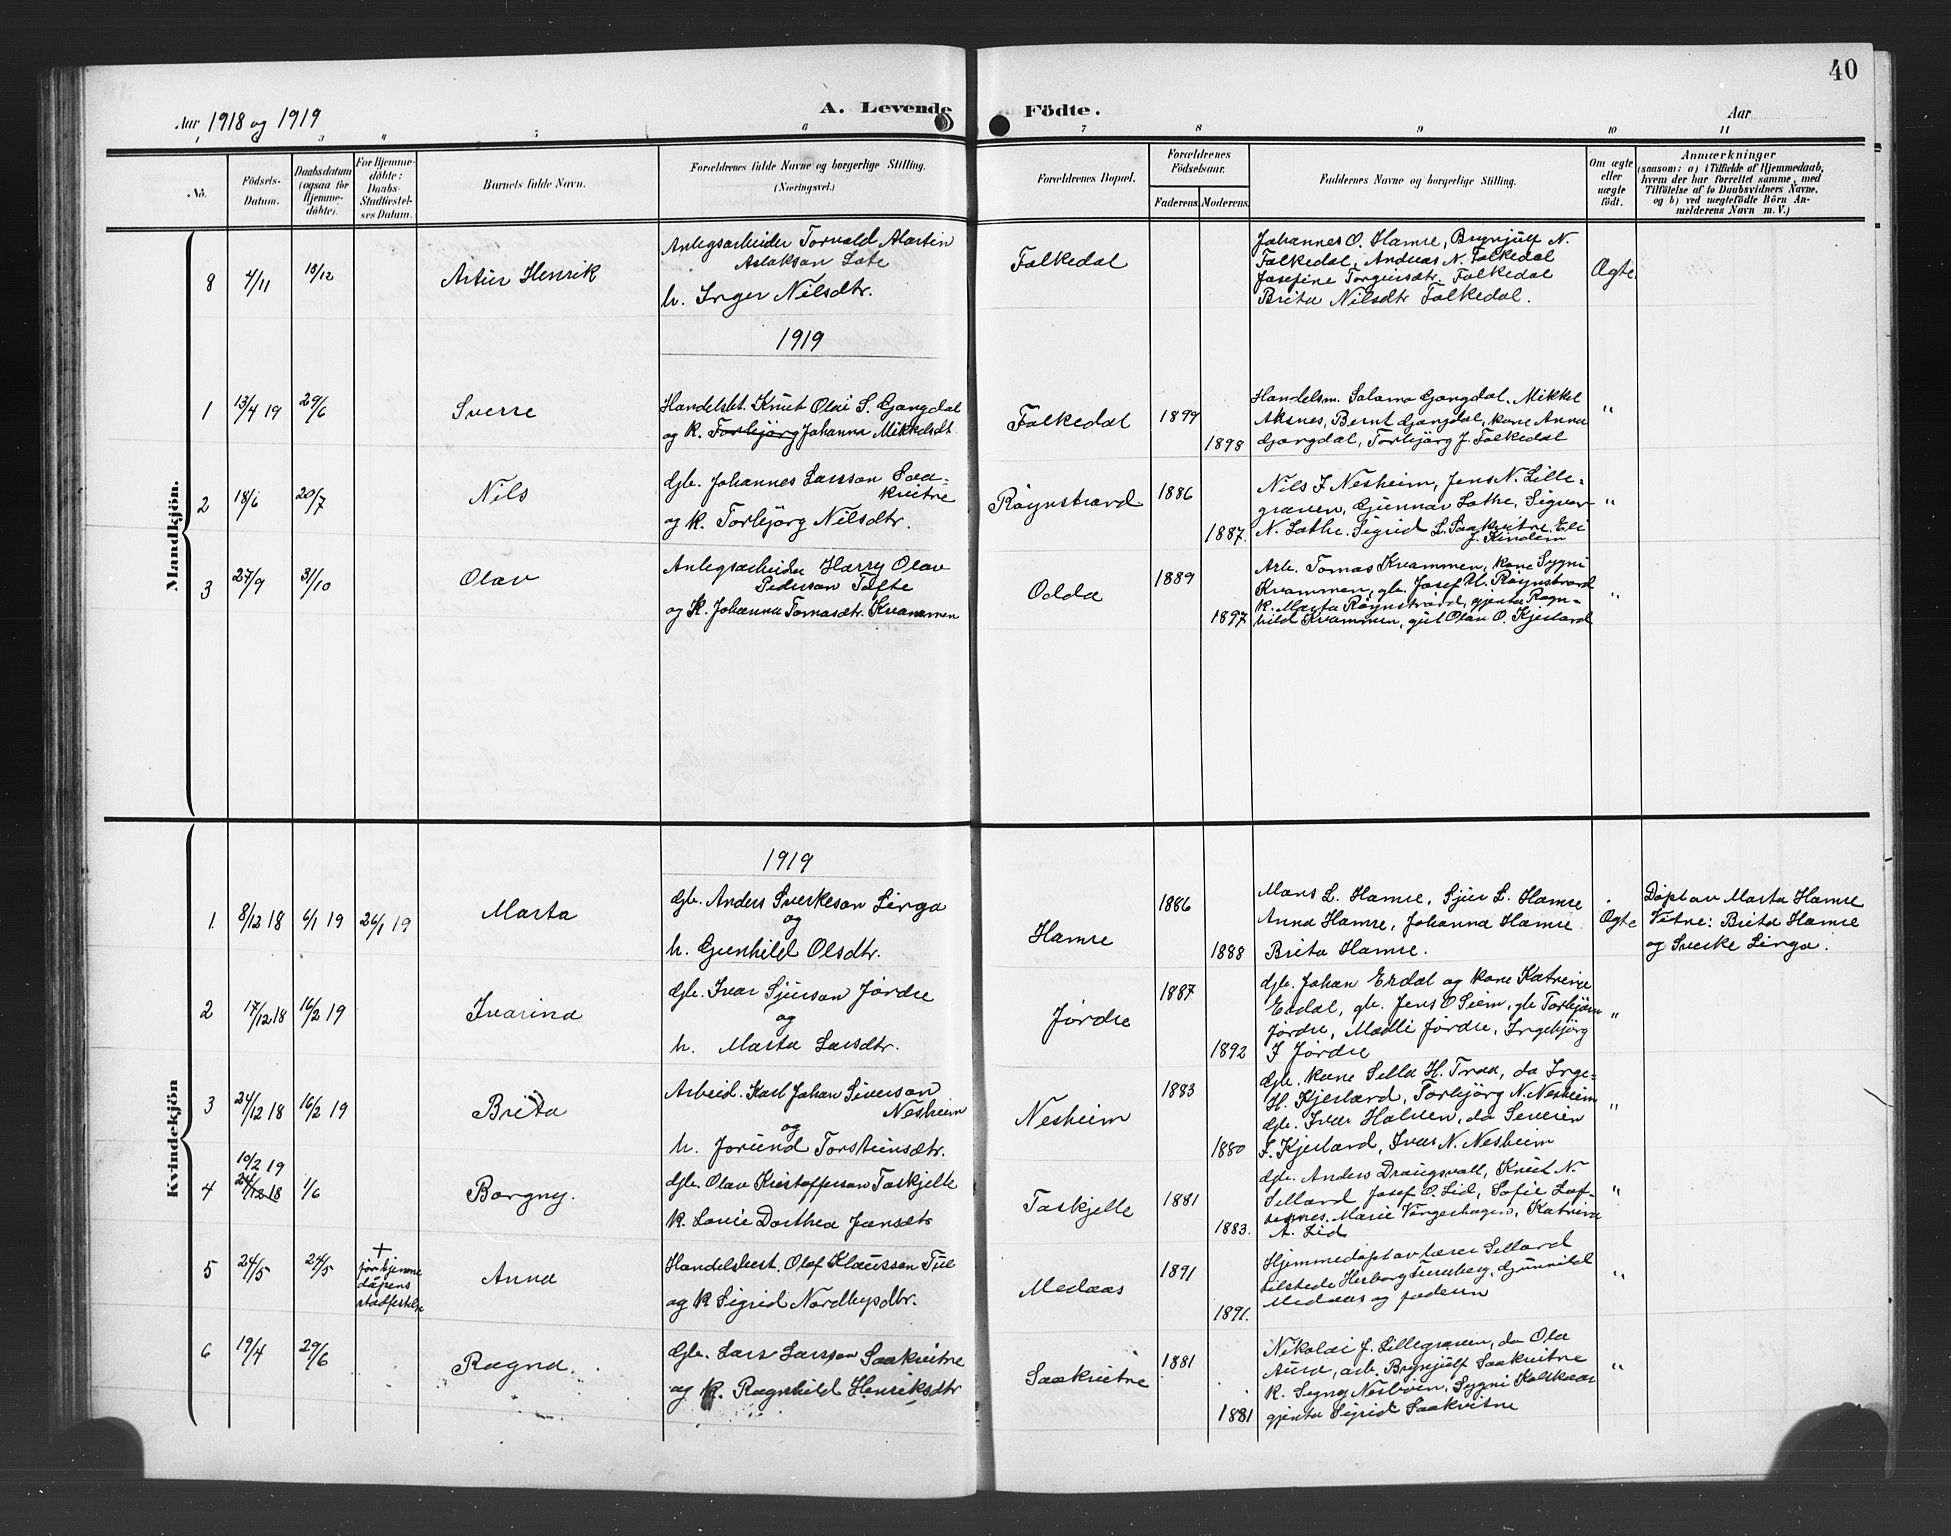 40
A. Levende Födte.
Aar 1918 og 1919
Aar
1 3 4 5 6 7 8 9 10 11
No.
Födsels-Datum.
Daabsdatum (ogsaa for Hjemme-döbte).
For Hjemme-döbte: Daabs-Stadfæstel-ses Datum.
Barnets fulde Navn.
Forældrenes fulde Navne og borgerlige Stilling. (Næringsvei.)
Forældrenes Bopæl.
Forældrenes Födselsaar.
Faderens.
Moderens.
Faddernes Navne og borgerlige Stilling.
Om ægte eller uægte födt.
Anmærkninger
(saasom: a) i Tilfælde af Hjemmedaab,
hvem der har forrettet samme, med
Tilföielse af to Daabsvidners Navne.
og b) ved uægtefödte Börn An-
melderens Navn m. V.)
Mandkjön.
8 4/11 15/12 Artur Henrik
Anlegsarbeider Torvald Martin
Aslaksan Late
h. Inger Nilsdtr.
Falkedal
Johannes O. Hamre, Brynjulf N.
Falkedal, Andreas N. Falkedal
Josefine Torgeirsdtr. Falkedal
Brita Nilsdtr Falkedal.
Ægte
1919
1 13/4 19 29/6 Sverre
Handelsbt. Knut Olai S. Gangdal
og k. Torbjörg Johanna Mikkelsdt
Falkedal
1899
1898
Handelsm. Salamo Gangdal, Mikkel
Aksnes, Bernt Gangdal, kone Anna
Gangdal, Torbjörg J. Falkedal
"
2 18/6 20/7 Nils
Gb. Johannes Larsson Saa-
kvitne
og k. Torbjörg Nilsdtr.
Röynstrand
1886
1887.
Nils I Nesheim, Jens N. Lille-
graven, Gunnar Lathe, Sigvor
N. Lathe. Sigrid L. Saakvitne. Eli
J. Kindem
"
3 27/9 31/10 Olav
Anlegsarbeider Harry Olav
Pederson Tofte
og k. Johanna Tomasdtr. Kvammen
Odda
1889
1897
Arb. Tomas Kvammen, kone Sygni
Kvammen, gb. Josef U. Röynstrand
k. Marta Röynstrand, gjenta Ragn-
hild Kvammen, gut Olav O. Kjerland
"
Kvindekjön
1919
1 8/12 18 6/1 19 26/1 19 Marta
Gb. Anders Sverkeson Linga
og
h. Gunhild Olsdtr.
Hamre
1886
1888
Mons L. Hamre, Sjur L. Hamre
Anna Hamre, Johanna Hamre
Brita Hamre.
Ægte
Döpt av Marta Hamre
Vitne: Brita Hamre
og Sverke Linga.
2 17/12 18 16/2 19 Ivarina
Gb. Ivar Sjurson Jördre
og
h. Marta Larsdtr.
Jördre
1887
1892
Gb. Johan Erdal og kone Katrina
Erdal, gb. Jens O Seim, gb Torbjörn
Jördre, Madli Jördre, Ingebjörg
I Jördre
"
3 24/12 18 16/2 19 Brita
Arbeid. Karl Johan Siverson
Nesheim
og
h. Jorund Torsteinsdtr.
Nesheim
1883
1880
Gb. kone Silla H. Traa, do Inge-
H. Kjerland, Torbjörg N. Nesheim
Gb. Ivar Halsen, do Severin
S. Kjerland, Ivar N. Nesheim
"
10/2 19
4 24/12 18 1/6 Borgny.
Gb. Olav Kristofferson Taskjelle
k. Lovise Dorthea Jansdtr
Taskjelle
1881
1883.
Gb. Anders Draugsvoll, Knut N.
Selland Josef O. Lid, Sofie Lof-
tesnes. Marie Vangershagen, Katrina
A. Lid
"
5 24/5 24/5 + för hjemme dåpens stadfestelse Anna
Handelsbest. Olaf Klaussen Tue
og k Sigrid Nordhusdtr.
Medaas
1891
1891.
Hjemmedöpt av lærer Selland
tilstede Herborg Tureberg, Gunnild
Medaas og faderen
"
6 19/4 29/6 Ragna.
Gb. Lars Larsson Saakvitne
og k. Ragnhild Henriksdtr
Saakvitne
1881
1881
Nikolai J. Lillegraven, do Ola
Aura, arb. Brynjulf Saakvitne
k. Signy Nesböen, Sygni Kolskaar
gjenta Sigrid Saakvitne
"